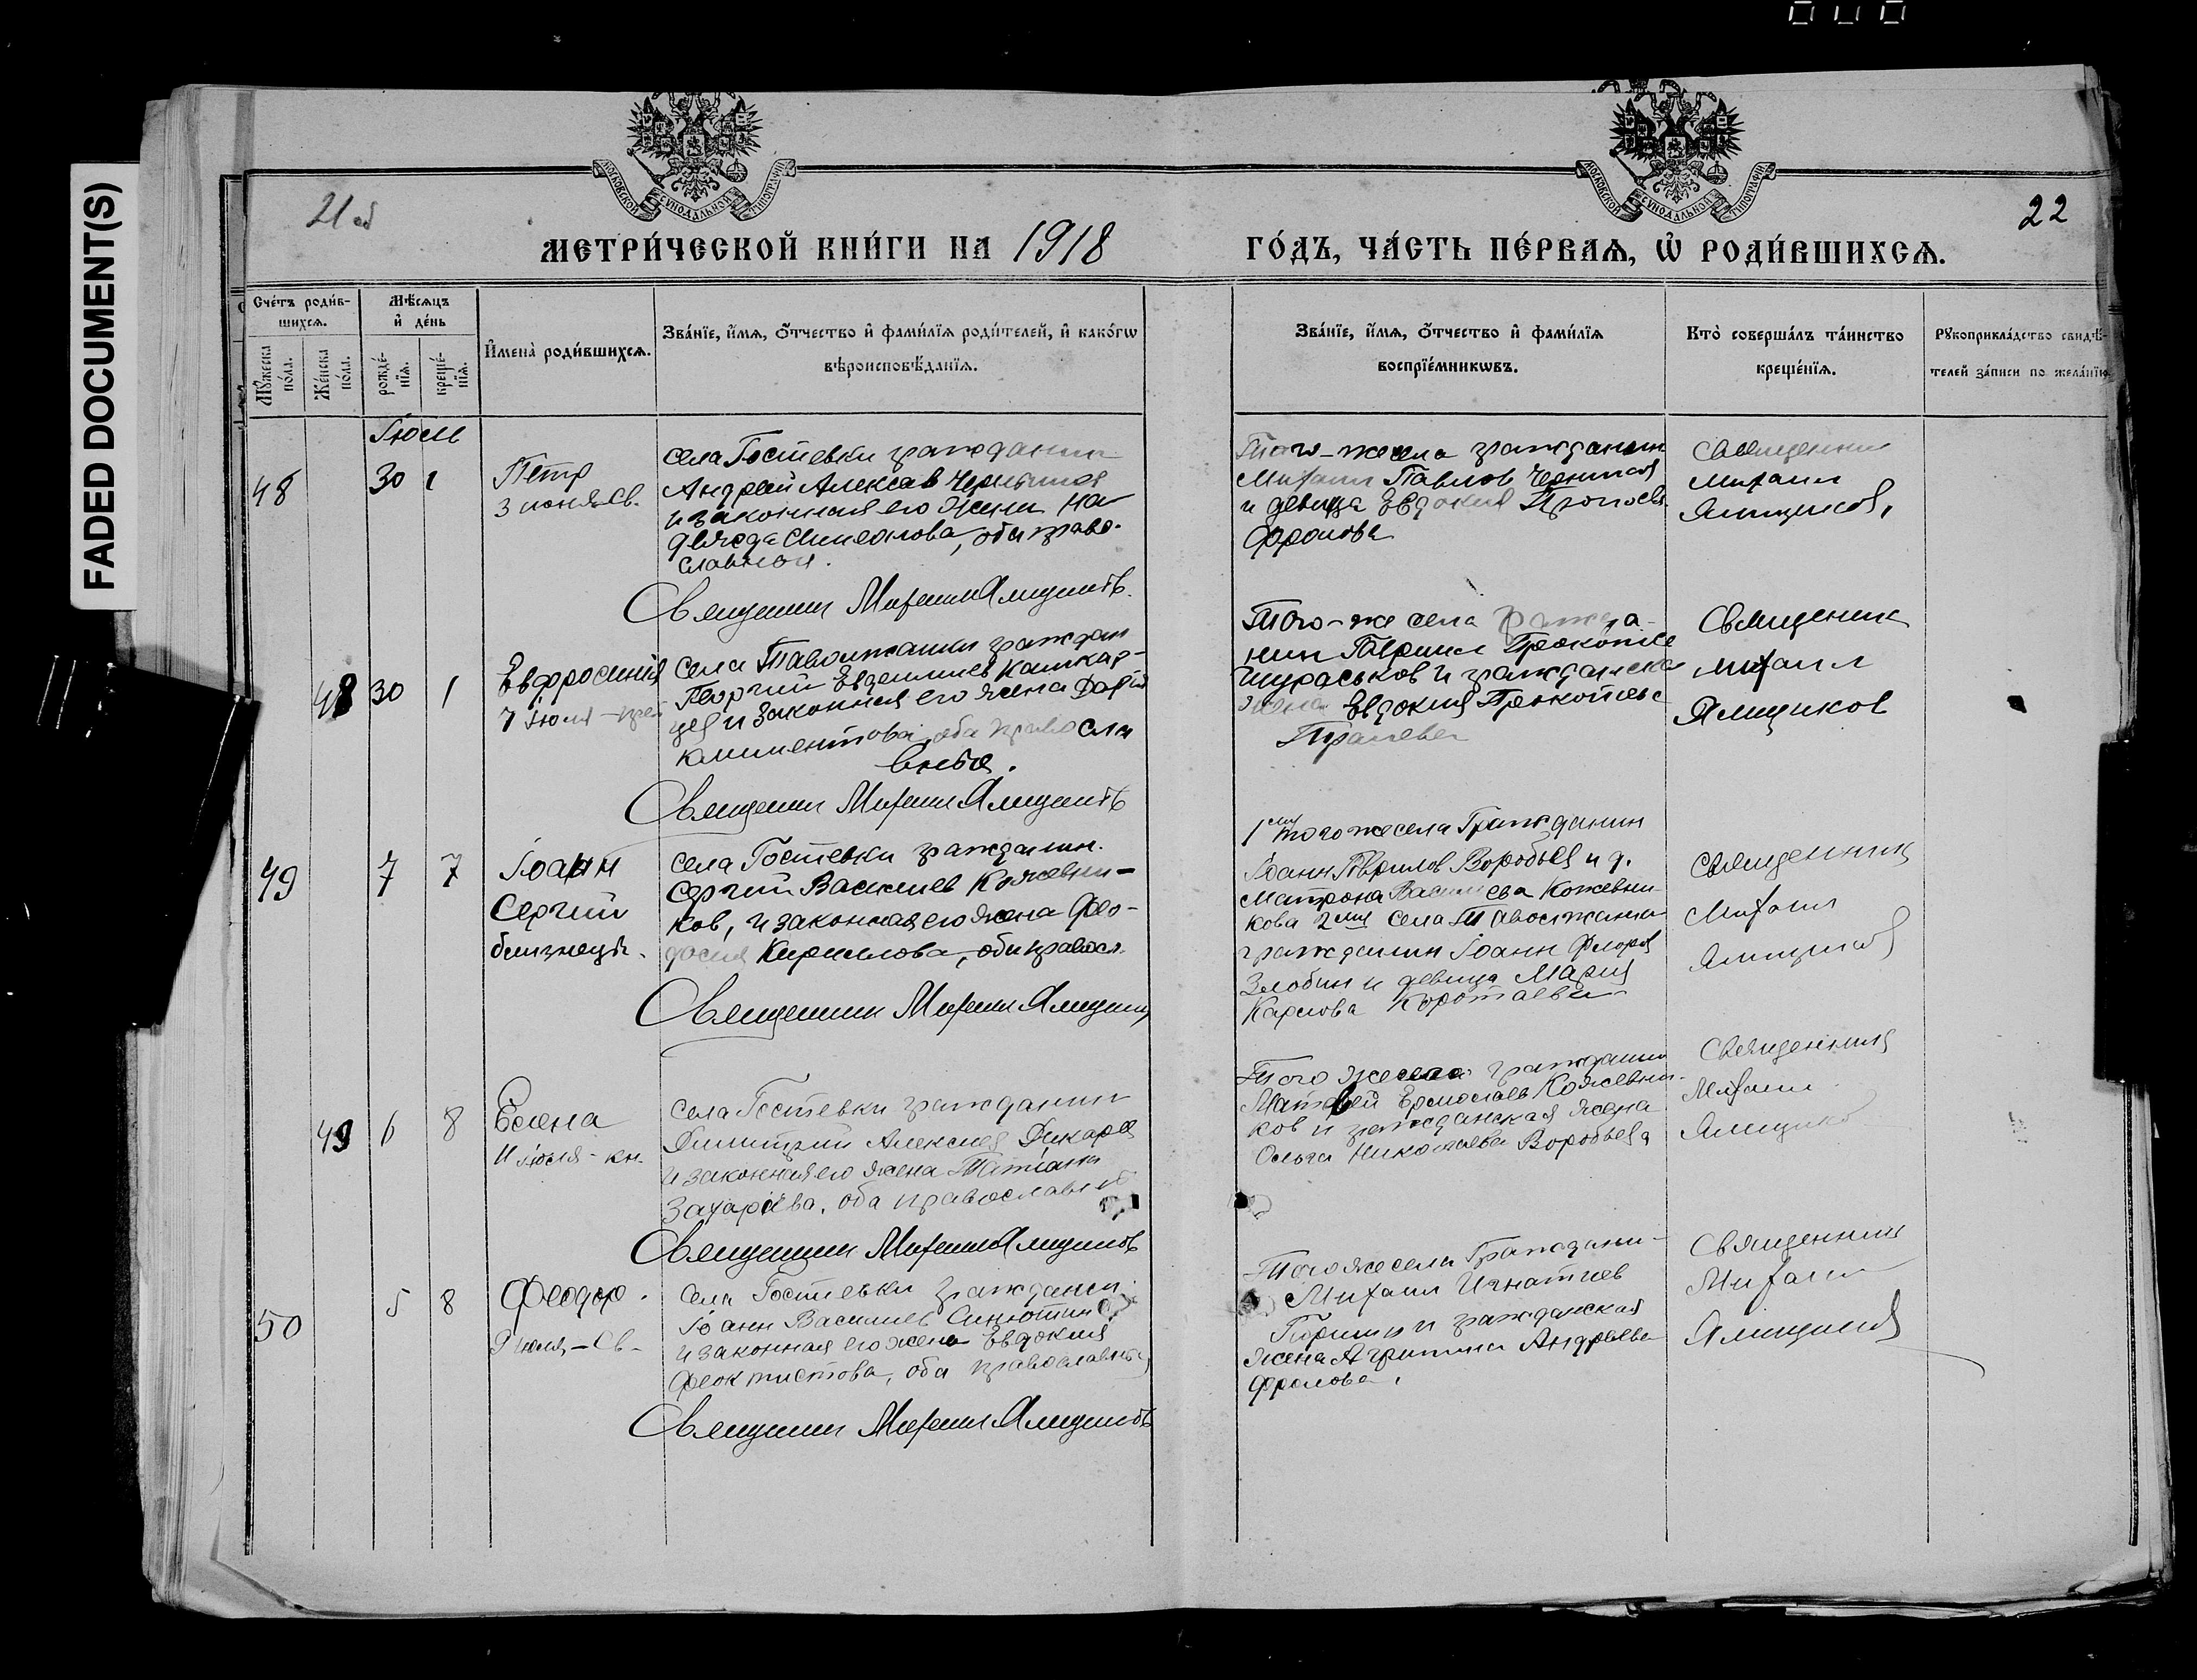 FADED DOCUMENT(S)
21 об
22
МОСКОВСКОЙ СѴНОДАЛЬНОЙ ТИПОГРАФІИ
МОСКОВСКОЙ СѴНОДАЛЬНОЙ ТИПОГРАФІИ
МЕТРИ́ЧЕСКОЙ КНИ́ГИ НА 1918
ГО́ДЪ, ЧА́СТЬ ПЕ́РВАѦ, Ѡ҆ РОДИ́ВШИХСѦ.
Сче́тъ роди́в-
шихсѧ.
Мꙋ́жеска по́ла.
Же́нска по́ла.
Мѣ́сѧцъ
и҆ де́нь
рожде́-
нїѧ.
креще́-
нїѧ.
И҆мена̀ роди́вшихсѧ.
Зва́нїе, и҆́мѧ, ѻ҆́тчество и҆ фами́лїѧ роди́телей, и҆ како́гѡ
вѣроисповѣ́данїѧ.
Зва́нїе, и҆́мѧ, ѻ҆́тчество и҆ фами́лїѧ
воспрїе́мникѡвъ.
Кто̀ соверша́лъ та́инство
креще́нїѧ.
Рꙋкоприкла́дство свидѣ́-
телей за́писи по жела́нїю
Іюль
48
30 1
Петр
3 июня св.
села Гостевки гражданин
Андрей Алексев
и законная его жена На
дежда Симеонова, оба право-
славныя.
Священник Михаил Ямщиков
Того-же села гражданин
Михаил Павлов
и девица Евдокия
Фролова
Священник
Михаил
Ямщиков
48 30 1
Евфросиния
7 июля
села Таволжанки граждан
Георгий
и законная его жена
Климентова, оба правосла
вные.
Священник Михаил Ямщиков
Того-же села гражда-
нин Гавриил
и гражданска
жена Евдокия
Священник
Михаил
Ямщиков
49
7 7
Іоанн
Сергий
близнецы.
села Гостевки граждани.
Сергий Василиев Кожевни-
ков, и законная его жена Фео-
досия Кирилова, оба правосл.
Священник Михаил Ямщиков
1 того же села Гражданин
Іоанн Гаврилов Воробьев и д.
Матрона Василиева Кожевни-
кова 2 села Таволжанки
гражданин Іоанн Флоров
Злобин и девица Мария
Карпова Коротаева
Священник
Михаил
Ямщиков
49 6 8
Елена
11 июля - кн.
села Гостевки гражданин
Димитрий Алексиев Дикарев
и законная его жена Татіана
Захарїева, оба православные
Священник Михаил Ямщиков
Того же села гражданин
Матвей Ермолаев Кожевни-
ков и гражданская жена
Ольга Николаева Воробьева
Священник
Михаил
Ямщиков
50
5 8
Феодор.
9 июля - св.
села Гостевки граждани.
Іоанн Василиев Синютин
и законная его жена Евдокия
Феоктистова, оба православные
Священник Михаил Ямщиков
Того же села Граждани-
Михаил Игнатиев
и гражданская
жена Агрипина Андреева
Фролова.
Священник
Михаил
Ямщиков